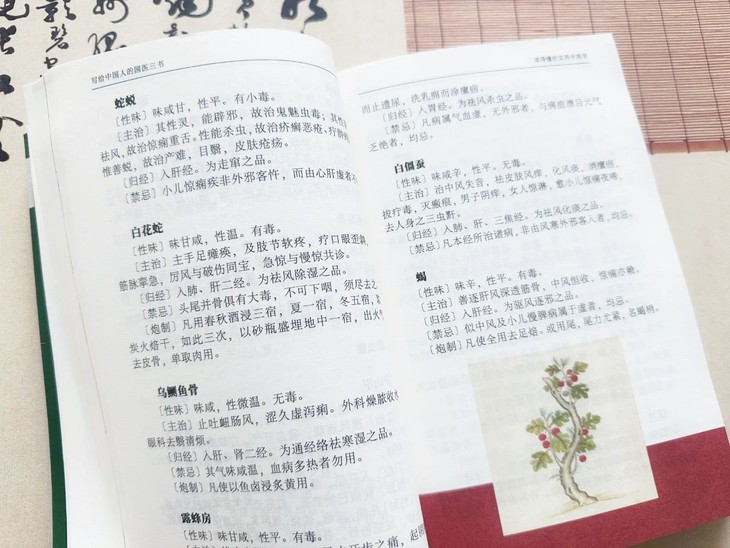 写给中国人的国医三书
蛇蜕
〔性味〕味咸甘，性平。有小毒。
〔主治〕其性灵，能辟邪，故治鬼魅虫毒；其性
祛风，故治惊痫重舌。性能杀虫，故治疥癣恶疮，疗肿
惟善蜕，故治产难，目翳，皮肤疮疡。
〔归经〕入肝经。为走窜之品。
〔禁忌〕小儿惊痫疾非外邪客忤，而由心肝虚者
白花蛇
〔性味〕味甘咸，性温。有毒。
〔主治〕主手足瘫痪，及肢节软疼，疗口眼歪
筋脉挛急，厉风与破伤同宝，急惊与慢惊共诊。
〔归经〕入肺、肝二经。为祛风除湿之品。
〔禁忌〕头尾并骨俱有大毒，不可下咽，须尽去之
〔炮制〕凡用春秋酒浸三宿，夏一宿，冬五宿，
炭火焙干，如此三次，以砂瓶盛埋地中一宿，出火
去皮骨，单取肉用。
乌鲗鱼骨
〔性味〕味咸，性微温。无毒。
〔主治〕止吐衄肠风，涩久虚泻痢。外科燥脓收水
眼科去翳清烦。
〔归经〕入肝、肾二经。为通经络祛寒湿之品。
〔禁忌〕其气味咸温，血病多热者勿用。
〔炮制〕凡使以鱼卤浸炙黄用。
露蜂房
〔性味〕味甘咸，性平。有毒。
牙齿之痛，起
而止遗尿，洗乳痈而涂瘰疬。
〔归经〕入胃经。为祛风杀虫之品。
〔禁忌〕凡病属气血虚，无外邪者，与痈疽溃后元气
乏绝者，均忌。
白僵蚕
〔性味〕味咸辛，性平。无毒。
〔主治〕治中风失音，祛皮肤风痒，化风痰，消瘰疬，
拔疔毒，灭瘢痕，男子阴痒，女人崩淋，愈小儿惊痫夜啼，
去人身之三虫黑䵟。
〔归经〕入肺、肝、三焦经。为祛风化痰之品。
〔禁忌〕凡本经所治诸病，非由风寒外邪客入者，均忌。
蝎
〔性味〕味辛，性平。有毒。
〔主治〕善逐肝风深透筋骨，中风恒收，惊痫亦簸。
〔归经〕入肝经。为驱风逐邪之品。
〔禁忌〕似中风及小儿慢脾病属于虚者，均忌。
〔炮制〕凡使全用去足焙。或用尾，尾力尤紧，名蝎梢。